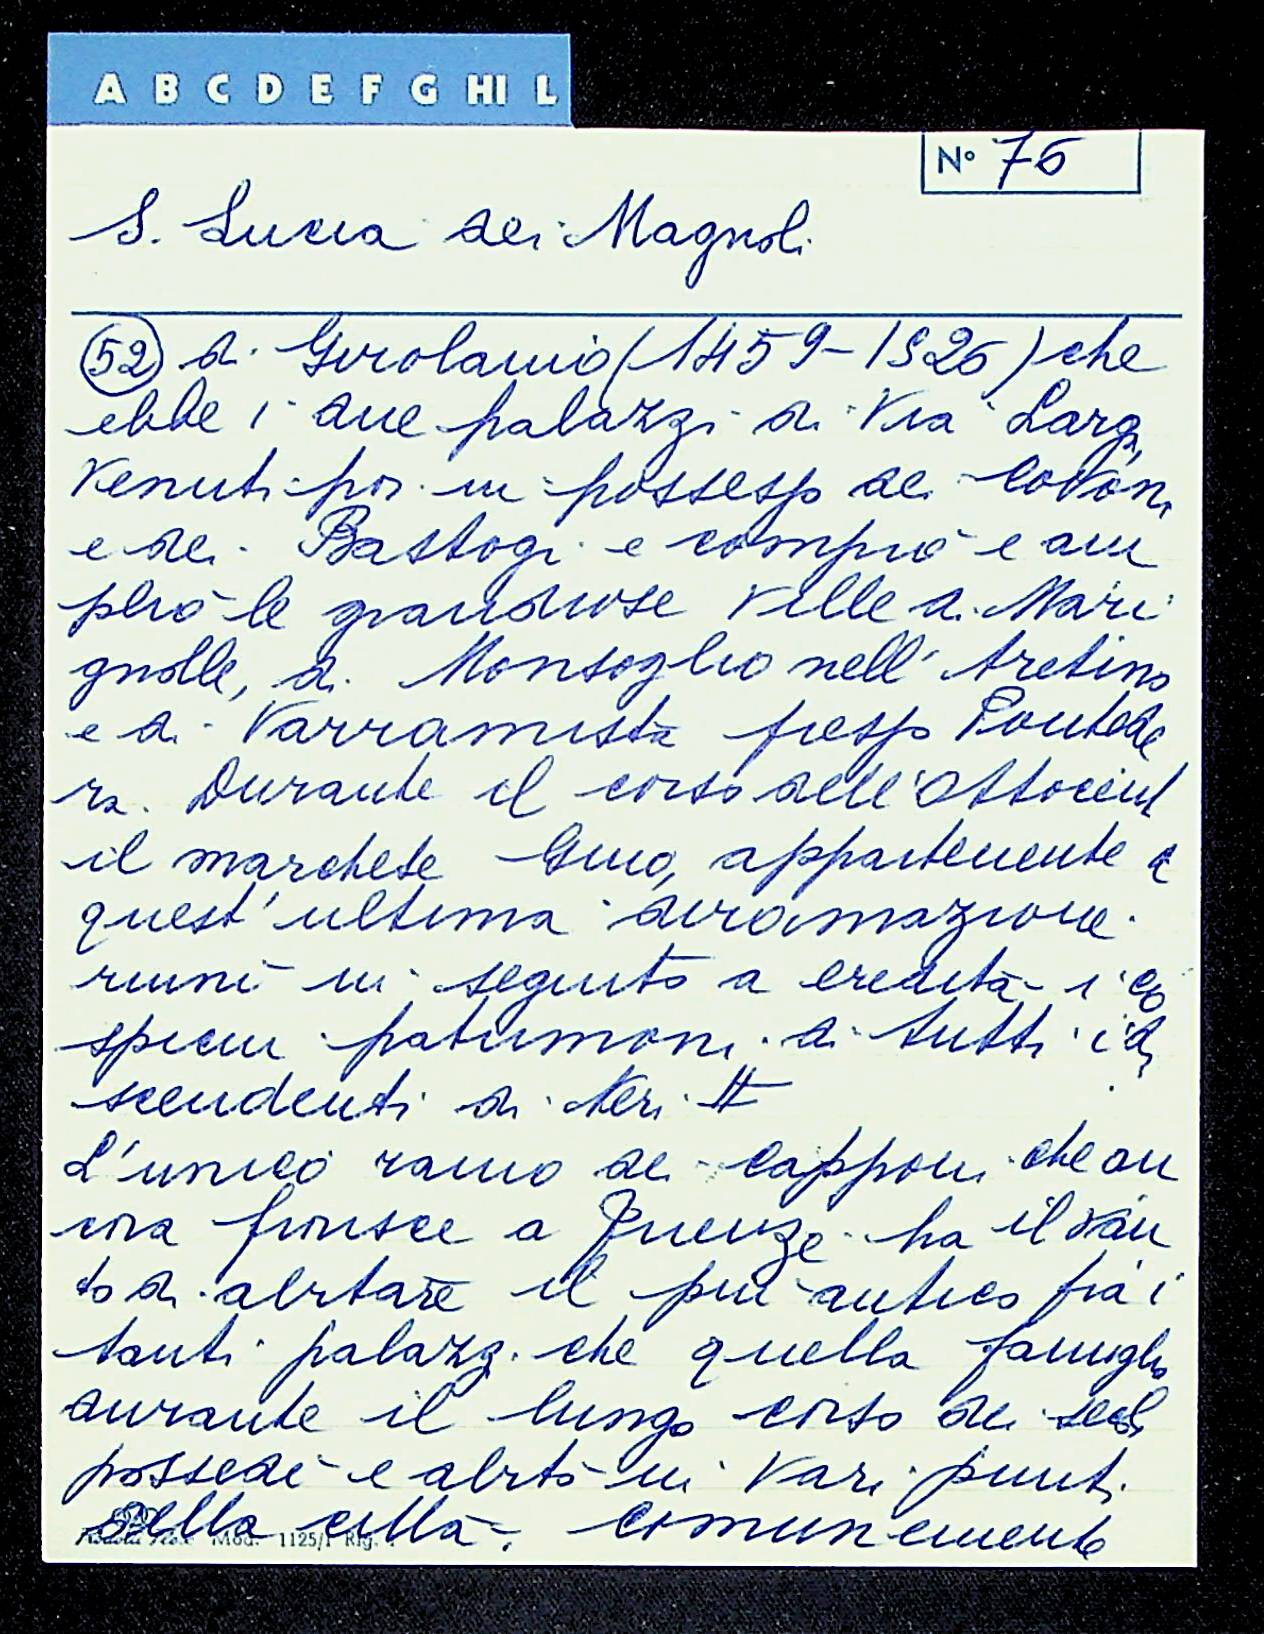 A B C D E F G HI L
N° 76
S. Lucia dei Magnoli
(52) di Girolamo (1459-1526) che
ebbe i due palazzi di Via Larga,
venuti poi in possesso dei Covoni
e dei Bastogi e comprò e am
pliò le grandiose ville di Mari
gnolle, di Monsoglio nell'Aretino
e di Varramista presso Pontede
ra. Durante il corso dell'Ottocento
il marchese Gino, appartenente a
quest'ultima diramazione
riunì in seguito a eredità i co
spicui patrimoni di tutti i di
scendenti di Neri II
L'unico ramo dei Capponi che an
cora fiorisce a Firenze ha il van
to di abitare il più antico fra i
tanti palazzi che quella famiglia
durante il lungo corso dei secoli
possedè e abitò in vari punti
della città, comunemente
Mod. 1125/1 Rig.